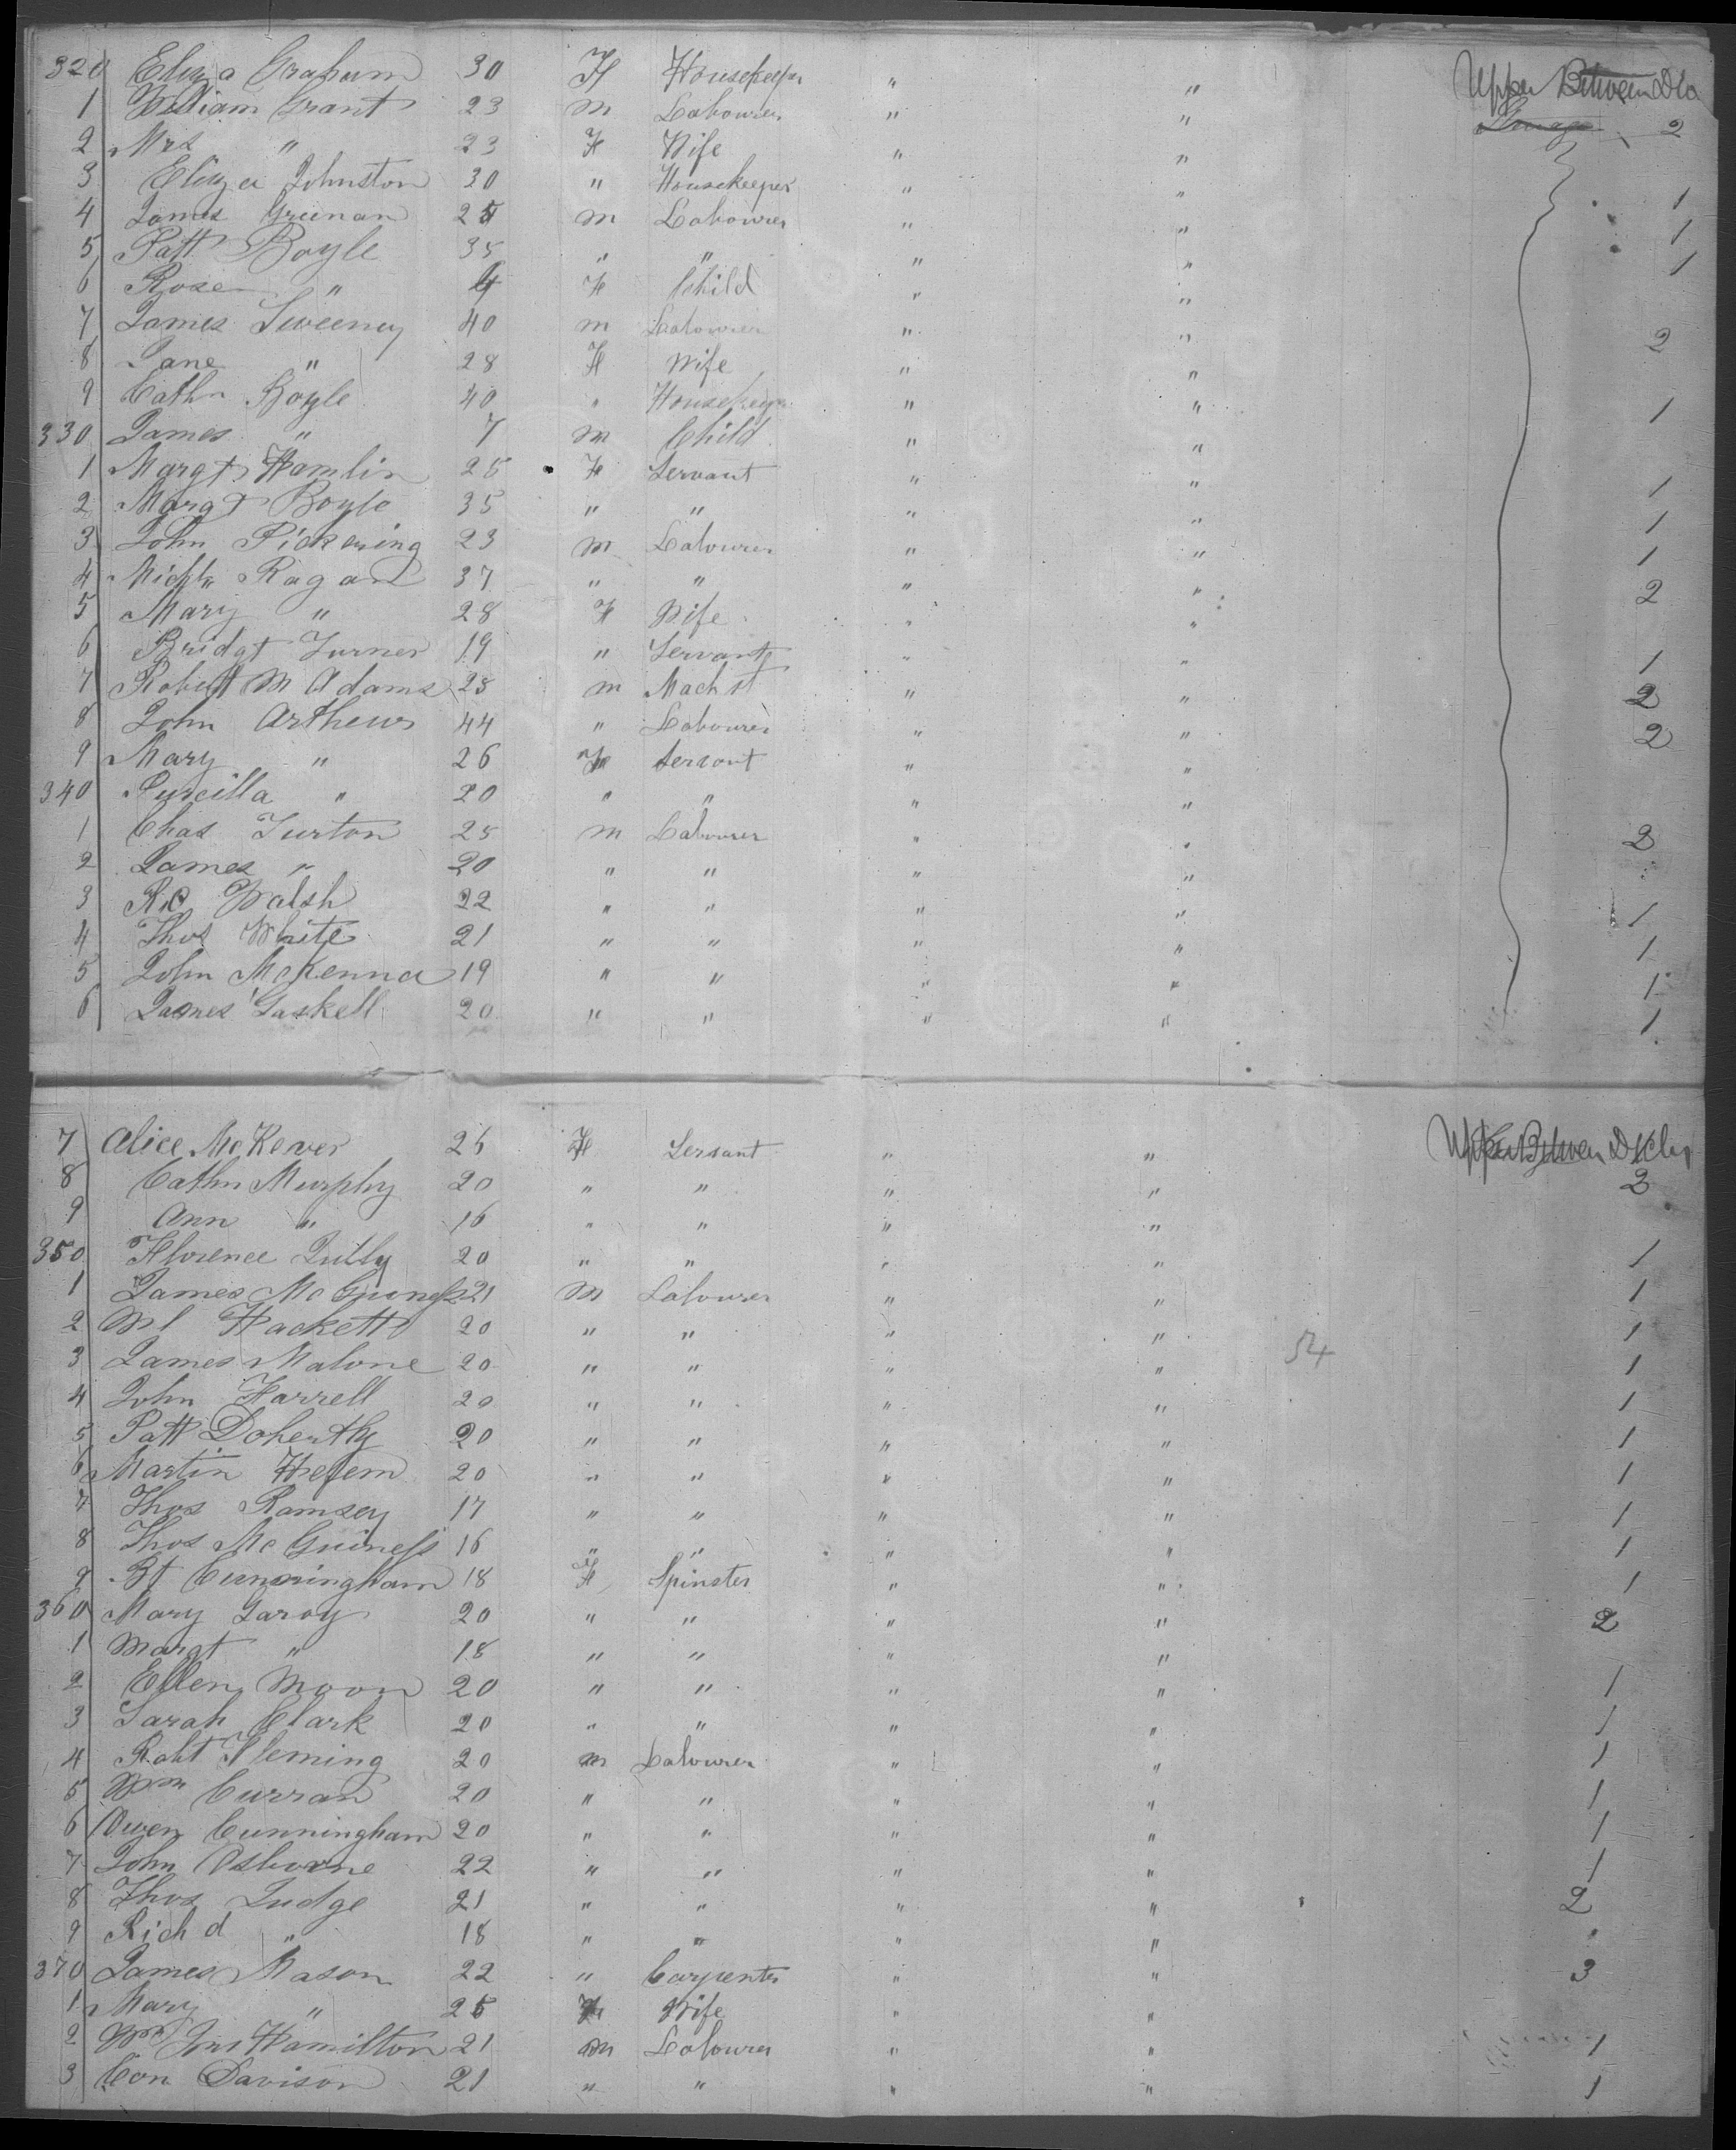 320 Eliza Graham 30 F Housekeeper " " Upper Between Dks
1 William Grant 23 m Labourer " " Storage 2
2 Mrs " 23 F Wife " "
3 Eliza Johnston 30 " Housekeeper " " 1
4 James Greenan 25 m Labourer " " 1
5 Patt Boyle 35 " " " " 1
6 Rose " 4 F Child " "
7 James Sweeney 40 m Labourer " " 2
8 Jane " 28 F Wife " "
9 Cathn Boyle 40 " Housekeeper " " 1
330 James " 7 m Child " "
1 Margt Hamlin 25 F Servant " " 1
2 Margt Boyle 35 " " " " 1
3 John Pickering 23 m Labourer " " 1
4 Michl Ragan 37 " " " " 2
5 Mary " 28 F Wife " "
6 Bridgt Turner 19 " Servant " " 1
7 Robert M Adams 25 m Machst " " 2
8 John Arthews 44 " Labourer " " 2
9 Mary " 26 F Servant " "
340 " 20 " " " "
1 Chas Turton 25 m Labourer " " 2
2 James " 20 " " " "
3 Walsh 22 " " " " 1
4 Thos White 21 " " " " 1
5 John McKenna 19 " " " " 1
6 James Gaskell 20 " " " " 1
7 Alice McKever 25 F Servant " " Upper Between Dks
8 Cathn Murphy 20 " " " " 2
9 Ann " 16 " " " "
350 Florence 20 " " " " 1
1 James McGuiness 21 m Labourer " " 1
2 Ml Hackett 20 " " " " 1
3 James Malone 20 " " " " 54 1
4 John Farrell 20 " " " " 1
5 Patt Doherthy 20 " " " " 1
6 Martin 20 " " " " 1
7 Thos Ramsey 17 " " " " 1
8 Thos McGuiness 16 " " " " 1
9 Bt Cunningham 18 F Spinster " " 1
360 Mary Garoy 20 " " " " 2
1 Margt " 18 " " " "
2 Ellen Moon 20 " " " " 1
3 Sarah Clark 20 " " " " 1
4 Robt Fleming 20 m Labourer " " 1
5 Wm Curran 20 " " " " 1
6 Owen Cunningham 20 " " " " 1
7 John Osborne 22 " " " " 1
8 Thos Judge 21 " " " " 2
9 Richd " 18 " " " "
370 James Mason 22 " Carpenter " " 3
1 Mary " 25 F Wife " "
2 Wm Hamilton 21 m Labourer " " 1
3 Con Davison 21 " " " " 1